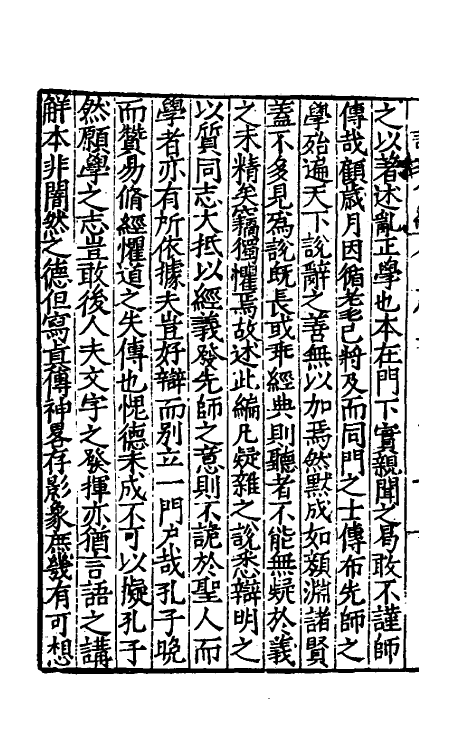 之以著述亂正學也本在門下實親聞之曷敢不謹師
傳哉顧歲月因循老已將及而同門之士傳布先師之
學殆遍天下說辭之善無以加焉然默成如顏淵諸賢
蓋不多見為說旣長或乖經典則聽者不能無疑於義
之未精矣竊獨懼焉故述此編凡疑雜之說悉辯明之
以質同志大抵以經義發先師之意則不詭於聖人而
學者亦有所依據夫豈好辯而別立一門戶哉孔子晚
而贊易脩經懼道之失傳也愧德未成不可以擬孔子
然願學之志豈敢後人夫文字之發揮亦猶言語之講
解本非闇然之德但寫真傳神畧存影象庶幾有可想